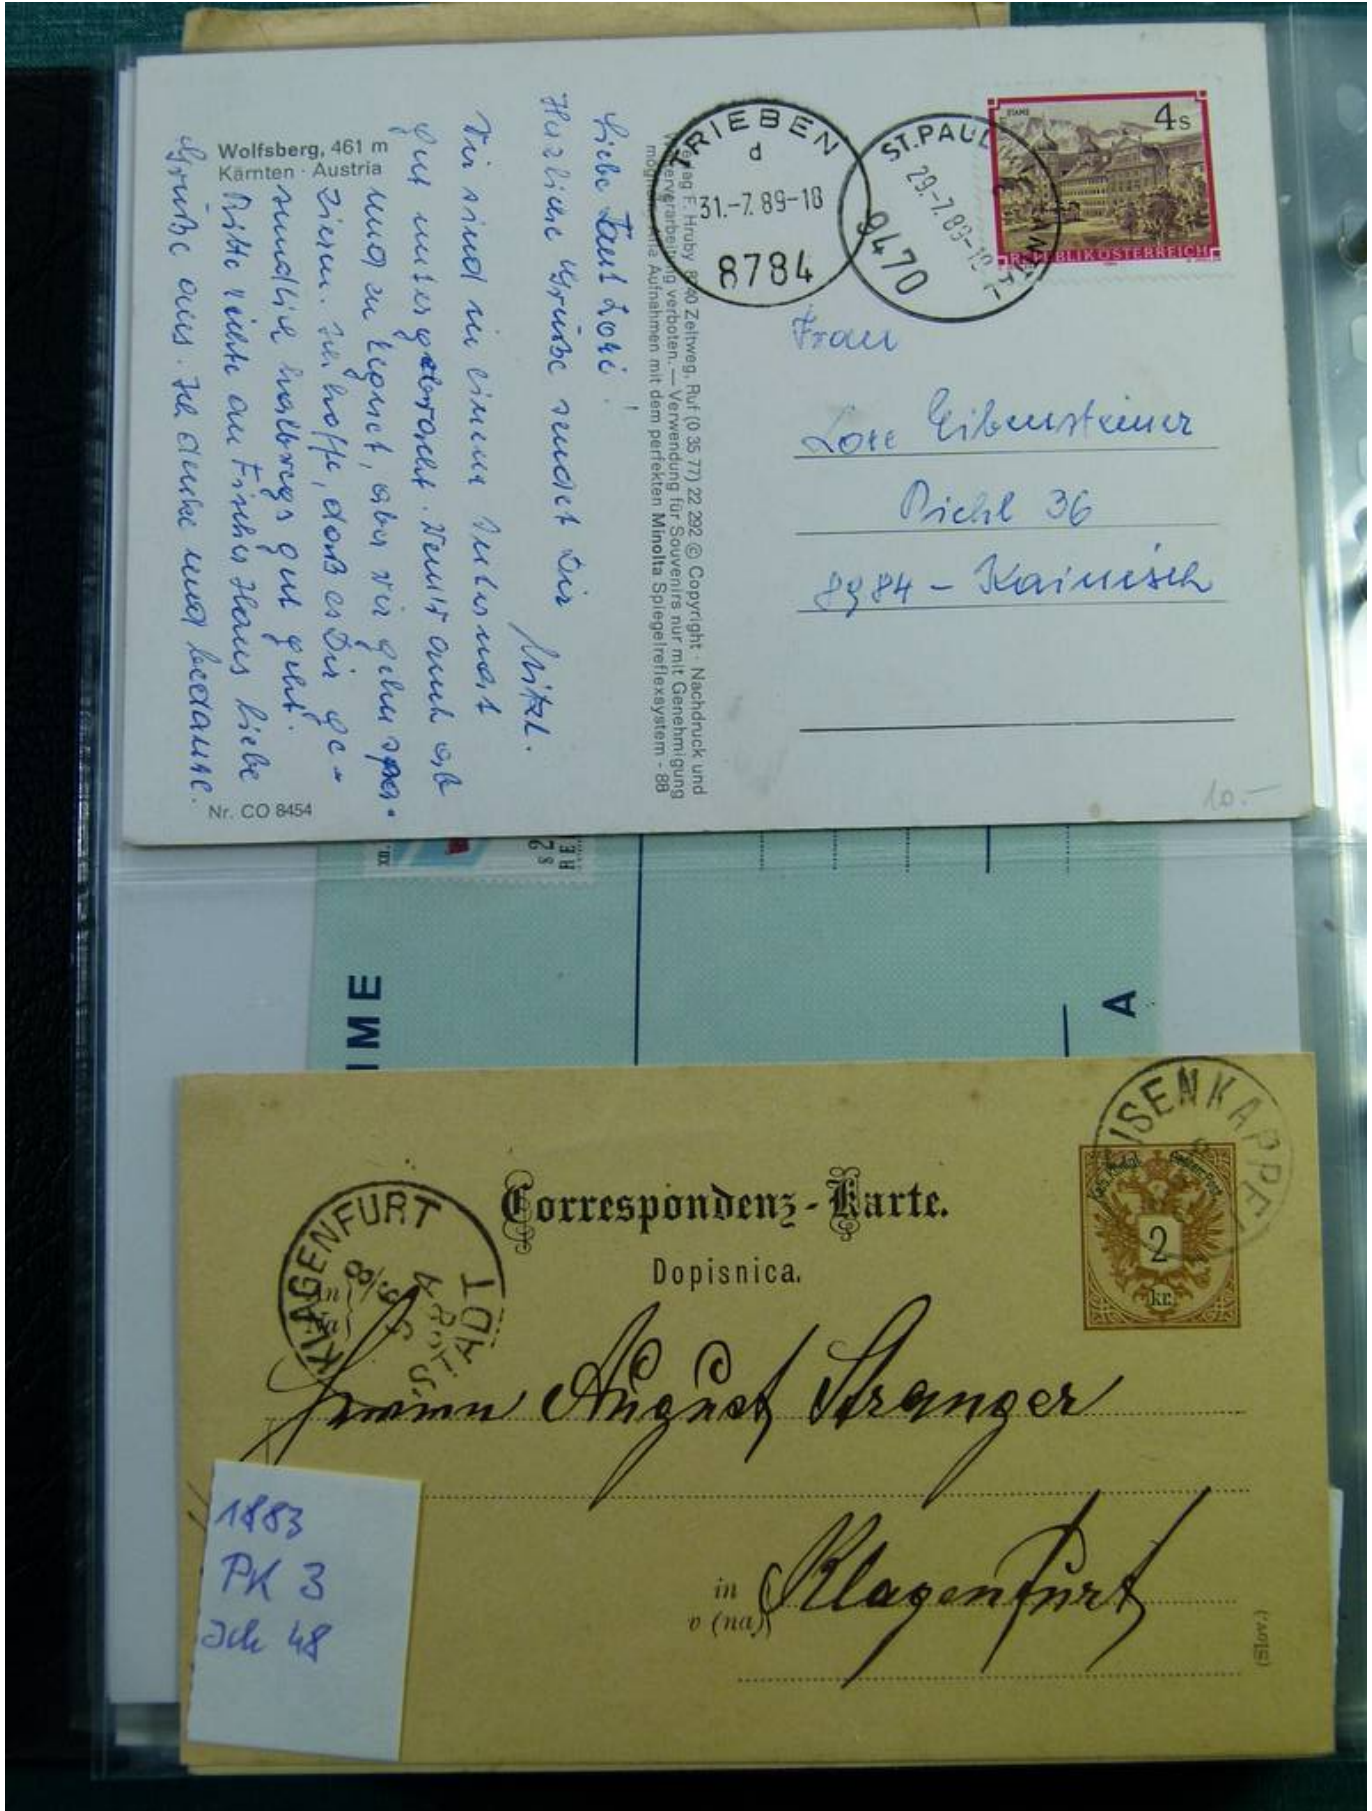 Wolfsberg, 461 m
Kärnten · Austria
Liebe Tant Lori!
Herzliche Grüße sendet Dir
Mitzl.
Wir sind in einem Internat
gut untergebracht. Wenn auch ab
und zu regnet, aber wir gehn spa-
zieren. Ich hoffe, daß es Dir ge-
sundlich halbwegs gut geht.
Bitte richte an Fischer Hans liebe
Grüße aus. Ich danke und bedanke.
Nr. CO 8454
Verlag F. Hruby 8740 Zeltweg, Ruf (0 35 77) 22 292 © Copyright · Nachdruck und
Weiterverarbeitung verboten. — Verwendung für Souvenirs nur mit Genehmigung
Aufnahmen mit dem perfekten Minolta Spiegelreflexsystem - 88
TRIEBEN
d
31.-7.89-18
8784
ST.PAUL
29.-7.89-18
9470
STAMS
4 S
REPUBLIK ÖSTERREICH
Frau
Lore Eibensteiner
Pichl 36
8984 - Kainisch
10.-
2 S
IME
A
Correspondenz-Karte.
Dopisnica.
KLAGENFURT
STADT
8/9
An
Na
ISENKAPPEL
2
kr.
Herrn August Stranger
in Klagenfurt
v (na)
(Slov.)
1883
PK 3
Ich 48